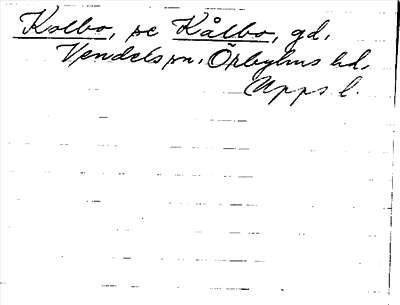 Kolbo, se Kålbo, gd,
Vendels sn, Örbyhus hd,
Upps l.